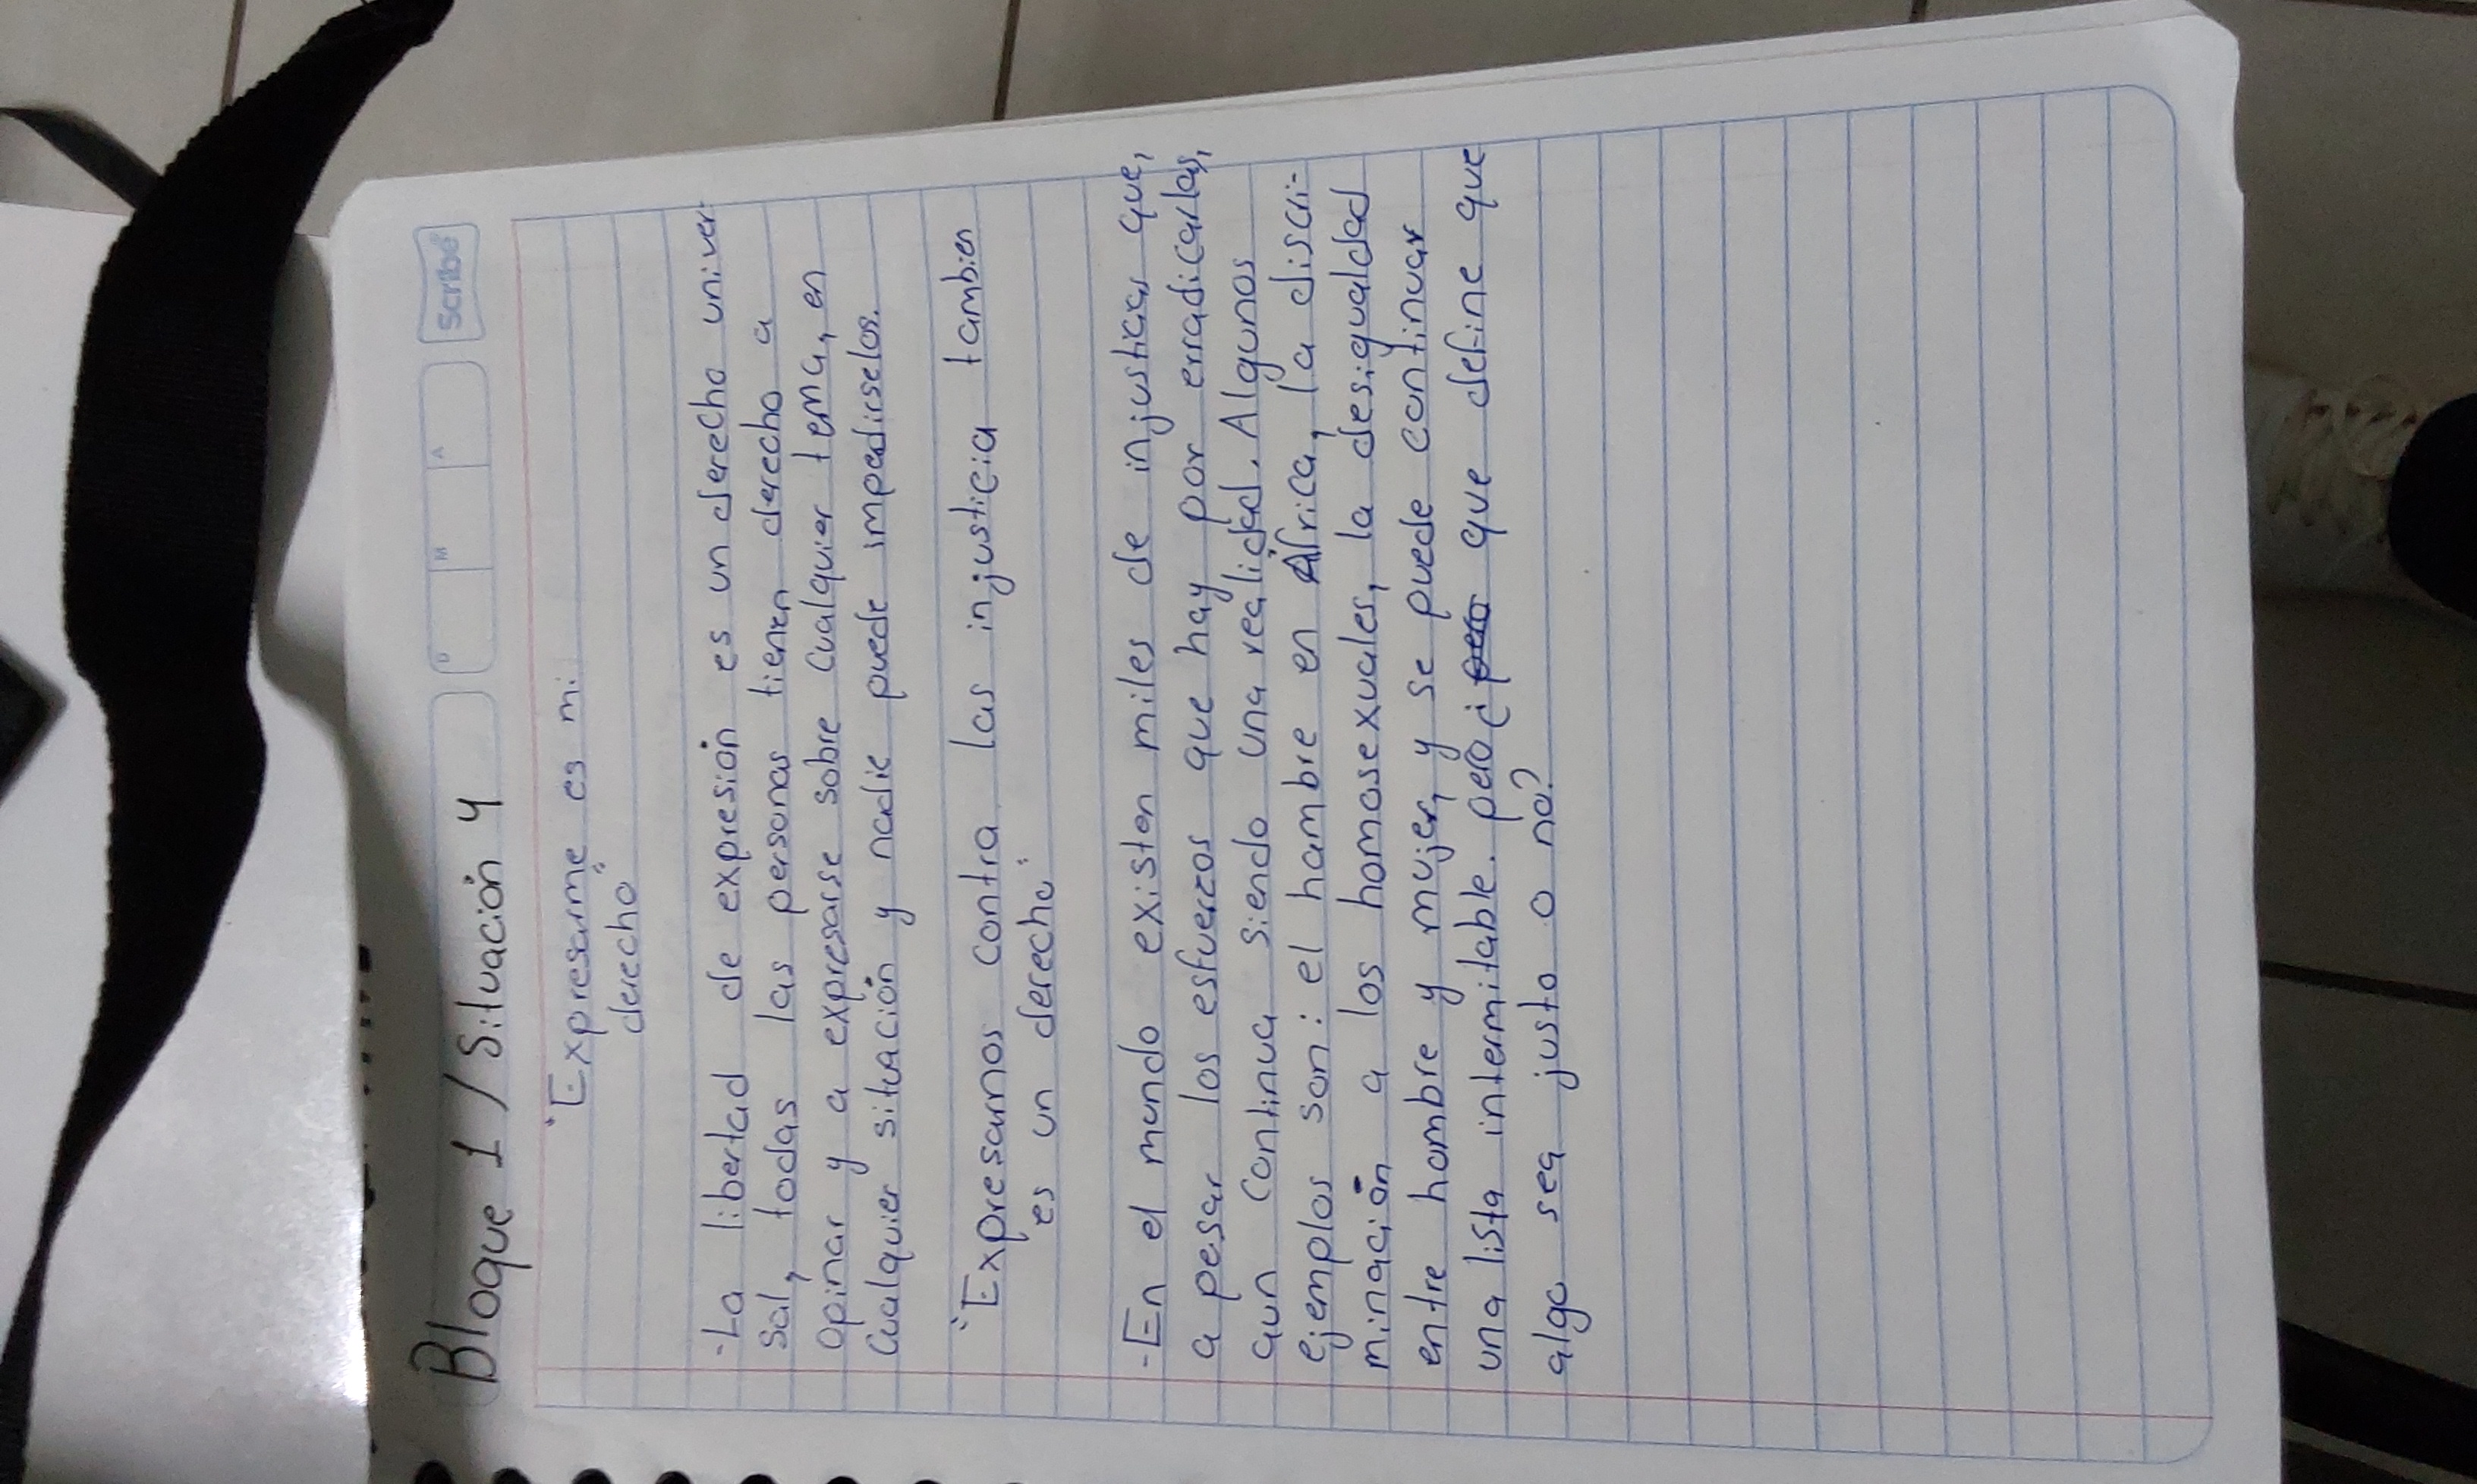 Scribe
D M A
Bloque 1 / Situación 4
"Expresarme es mi
derecho"
-La libertad de expresión es un derecho univer-
sal, todas las personas tienen derecho a
opinar y a expresarse sobre cualquier tema, en
cualquier situación y nadie puede impedirselos.
"Expresarnos contra las injusticia tambien
es un derecho"
-En el mundo existen miles de injusticias que,
a pesar los esfuerzos que hay por erradicarlas,
aun continua siendo una realidad. Algunos
ejemplos son: el hambre en África, la discri-
minación a los homosexuales, la desigualdad
entre hombre y mujer, y se puede continuar
una lista intermitable. pero ¿ pero que define que
algo sea justo o no?